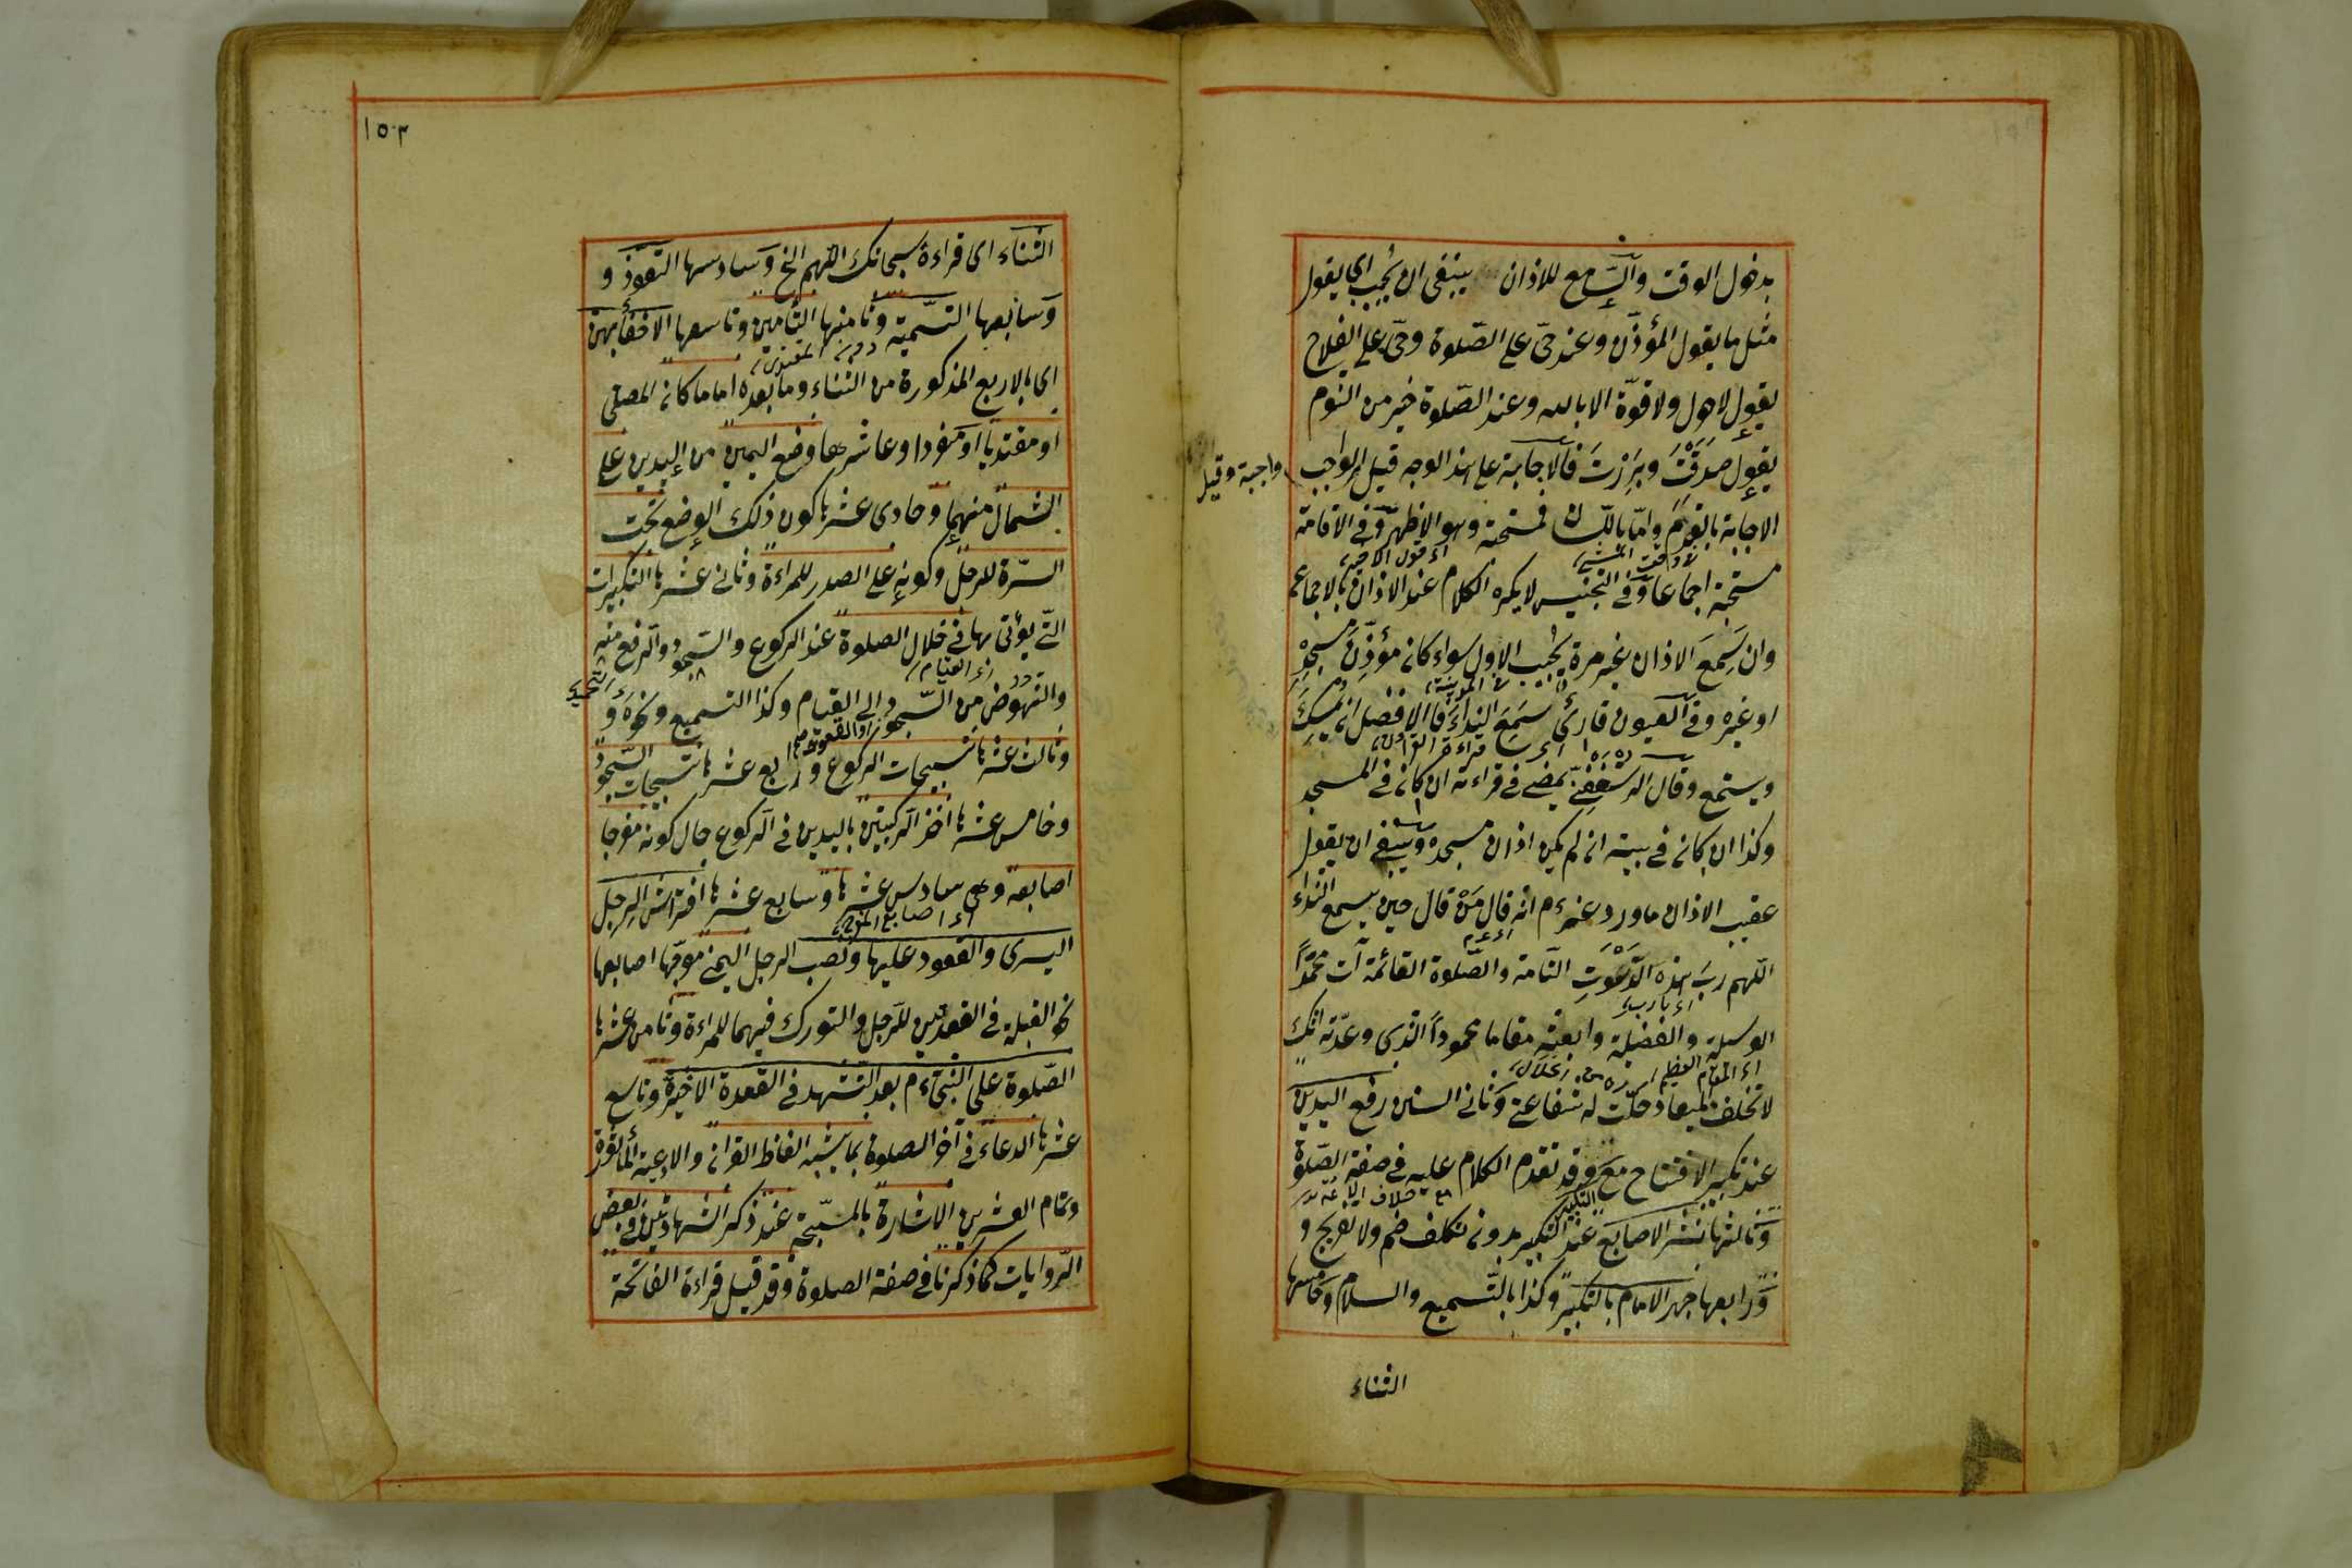 بدخول الوقت والسّامع للاذان ينبغى ان يُجيب اى يقول
مثل ما يقول المؤذّن وعند حىّ على الصّلوة وحىّ على الفلاح
يقول لا حول ولا قوّة الا بالله وعند الصّلوة خير من النوم
يقول صَدَقْتَ وبَرَرْتَ فالاجابة على هذا الوجه قيل الواجب
واجبة وقيل
الاجابة بالقدم وامّا باللّسان فمستحبّة وهو الاظهر وفى الاقامة
مستحبّة اجماعا وفى التجنيس لا يكره الكلام عند الاذان بالاجماع
وان سَمِعَ الاذان غير مرة يُجيب الاول سواء كان مؤذّنَ مسجدِه
او غيره وفى العيون قارئ سَمِعَ النداءَ فالافضل ان يمسك
قراءة القرآن
ويستمع وقال الرستغفنى يمضى فى قراءته ان كان فى المسجد
وكذا ان كان فى بيته ان لم يكن اذان مسجده وينبغى ان يقول
عقيب الاذان ما ورد عنه ءم انه قال مَنْ قال حين يسمع النداء
اللّهم ربَ هذه الدَّعْوَتِ التامة والصّلوة القائمة آت محمّداً
اى يا رب
الوسيلة والفضيلة وابعثه مقاما محموداً الّذى وعدّته انّك
اى المقام العظيم
لا تخلف الميعاد حلّت له شفاعتى وثانى السنن رفع اليدين
عند تكبير الافتتاح مع وقد تقدم الكلام عليه فى صفة الصّلوة
التكبير
وثالثها نشر الاصابع عند التكبير بدون تكلف ضم ولا تفريج و
ورابعها جهر الامام بالتكبير وكذا بالتّسميع والسلام وخامسها
الثناء
١٥٣
الثناء اى قراءة سبحانك اللّهم الخ وسادسها التعوّذ و
وسابعها التسّمية وثامنها التأمين وتاسعها الاخفاء بهنّ
دون المقتدى
اى بالاربع المذكورة من الثناء وما بعده اماما كان المصلى
او مقتديا او منفردا وعاشرها وضع اليمين من اليدين على
الشمال منهما وحادى عشرها كون ذلك الوضع تحت
السّرة للرجل وكونه على الصدر للمراءة وثانى عشرها التكبيرات
التى يؤتى بها فى خلال الصلوة عند الركوع والسّجود والرفع منه
اى القيام
والنهوض من السّجود الى القيام وكذا التسميع ونحوه و
التحميد
او القعود
وثالث عشرها تسبيحات الركوع ورابع عشرها تسبيحات السّجود
وخامس عشرها اخذ الركبتين باليدين فى الركوع حال كونه مفرجا
اصابعه وهى سادس عشرها وسابع عشرها افتراش الرجل
اى اصابع الرجل
اليسرى والقعود عليها ونصب الرجل اليمنى موجّها اصابعها
نحو القبلة فى القعدتين للرجل والتورك فيهما للمراءة وثامن عشرها
الصّلوة على النبى ءم بعد التشهد فى القعدة الاخيرة وتاسع
عشرها الدعاء فى آخر الصلوة بما يشبه الفاظ القران والادعية المأثورة
وتمام العشرين الاشارة بالمسبّحة عند ذكر الشهادتين فى بعض
الرّوايات كما ذكرنا فى صفة الصلوة وقد قيل قراءة الفاتحة